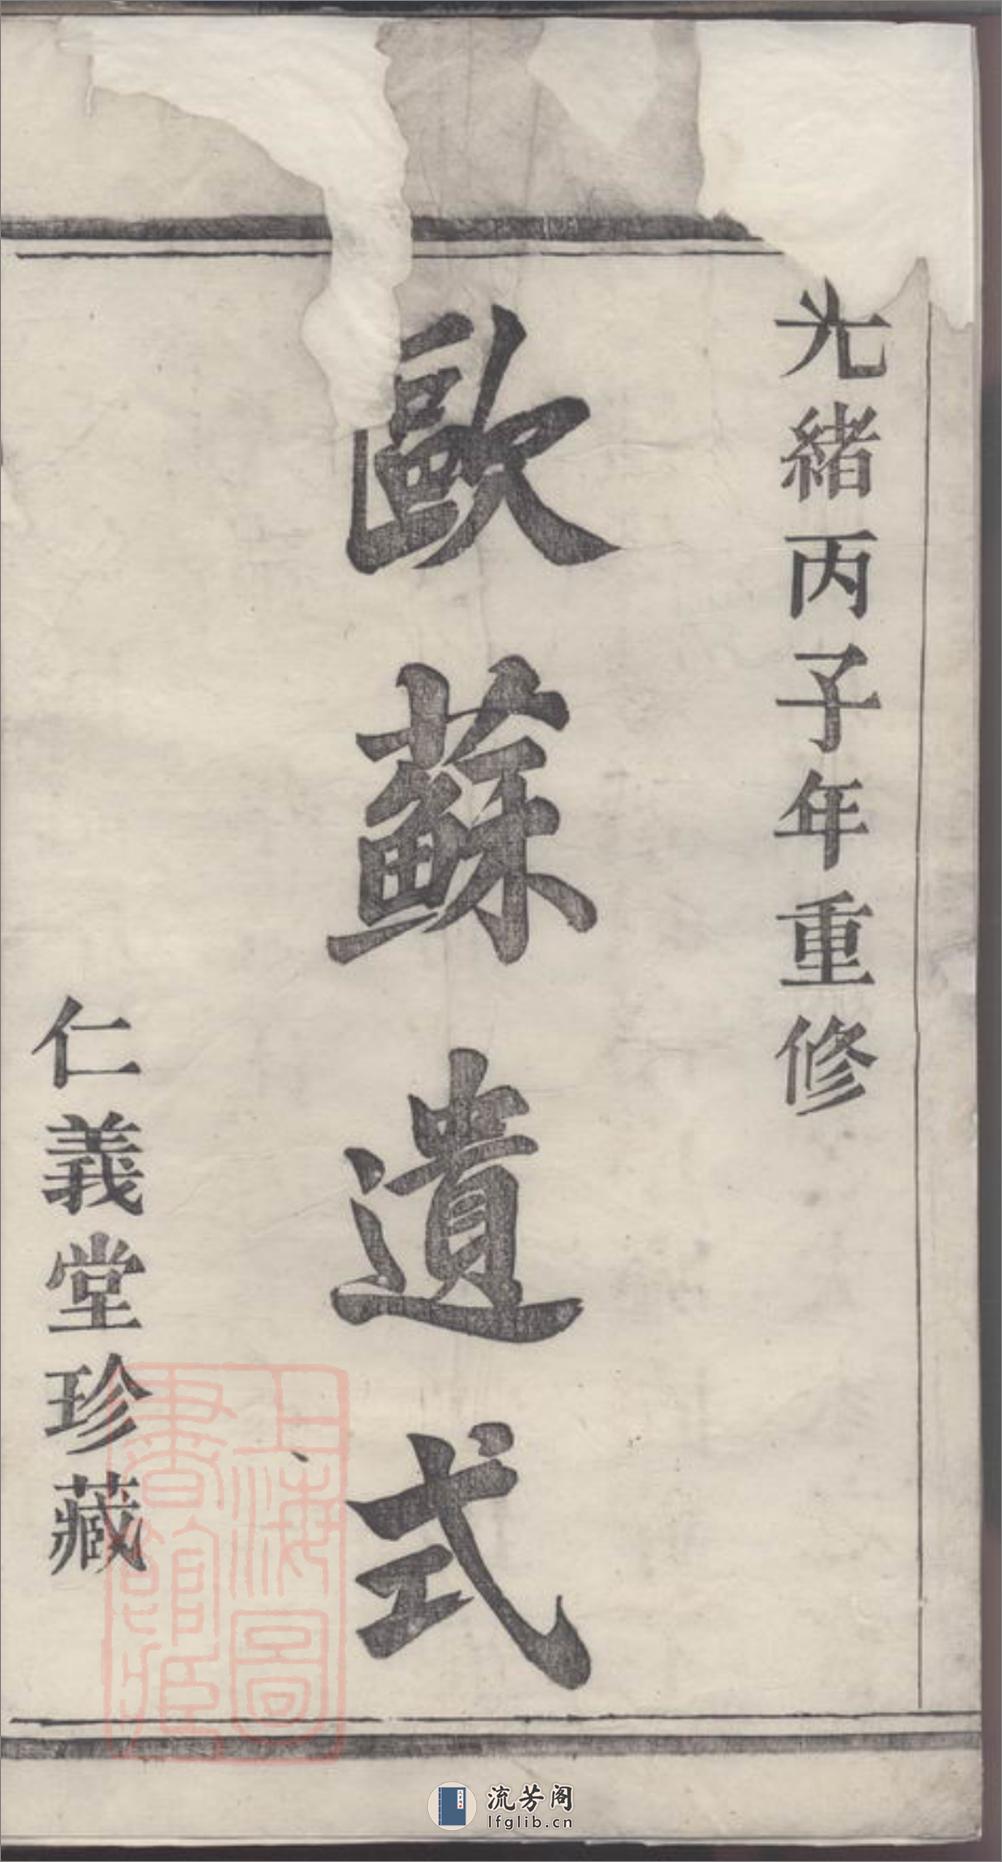 光緒丙子年重修
歐蘇遺式
仁義堂珍藏
上海圖
書館藏
流芳阁
lfglib.cn